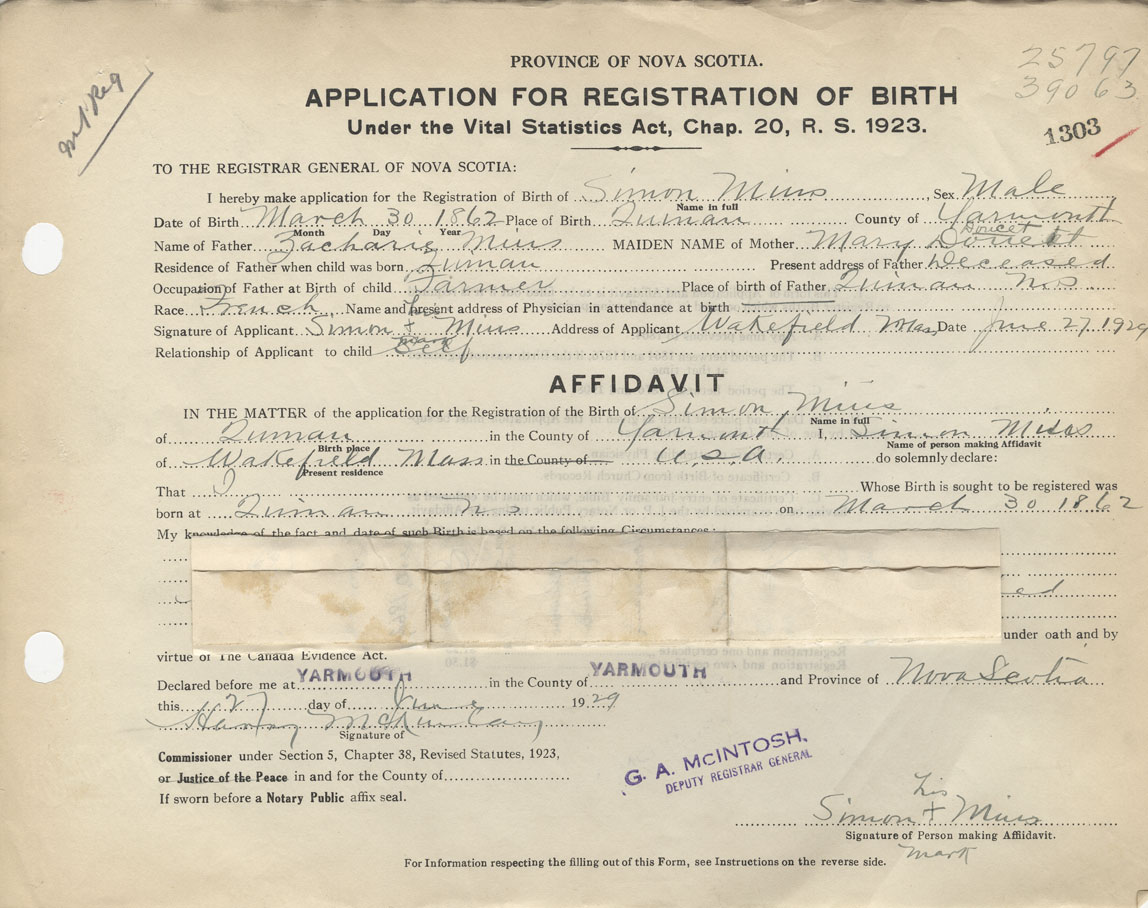 25797
39063
1303
PROVINCE OF NOVA SCOTIA.
APPLICATION FOR REGISTRATION OF BIRTH
Under the Vital Statistics Act, Chap. 20, R. S. 1923.
TO THE REGISTRAR GENERAL OF NOVA SCOTIA:
I hereby make application for the Registration of Birth of Simon Mius Sex Male
Name in full
Date of Birth March 30 1862 Place of Birth Quinan County of Yarmouth
Month Day Year
Doucet
Name of Father Zacharie Mius MAIDEN NAME of Mother Mary Doucett
Residence of Father when child was born Quinan Present address of Father Deceased
Occupation of Father at Birth of child Farmer Place of birth of Father Quinan N.S
Race French Name and present address of Physician in attendance at birth
Signature of Applicant Simon + Mius Address of Applicant Wakefield Mass, Date June 27 1929
his
mark
Relationship of Applicant to child Self
AFFIDAVIT
IN THE MATTER of the application for the Registration of the Birth of Simon Mius
Name in full
of Quinan in the County of Yarmouth I, Simon Mius
Birth place Name of person making Affidavit
of Wakefield Mass in the County of U.S.A. do solemnly declare:
Present residence
That I Whose Birth is sought to be registered was
born at Quinan N.S. on March 30 1862
My knowledge of the fact and date of such Birth is based on the following Circumstances:
ed
under oath and by
virtue of The Canada Evidence Act.
Declared before me at YARMOUTH in the County of YARMOUTH and Province of Nova Scotia
this 27 day of June 1929
Signature of
Commissioner under Section 5, Chapter 38, Revised Statutes, 1923,
or Justice of the Peace in and for the County of
If sworn before a Notary Public affix seal.
G. A. McINTOSH,
DEPUTY REGISTRAR GENERAL
his
Simon + Mius
Signature of Person making Affiidavit.
mark
For Information respecting the filling out of this Form, see Instructions on the reverse side.